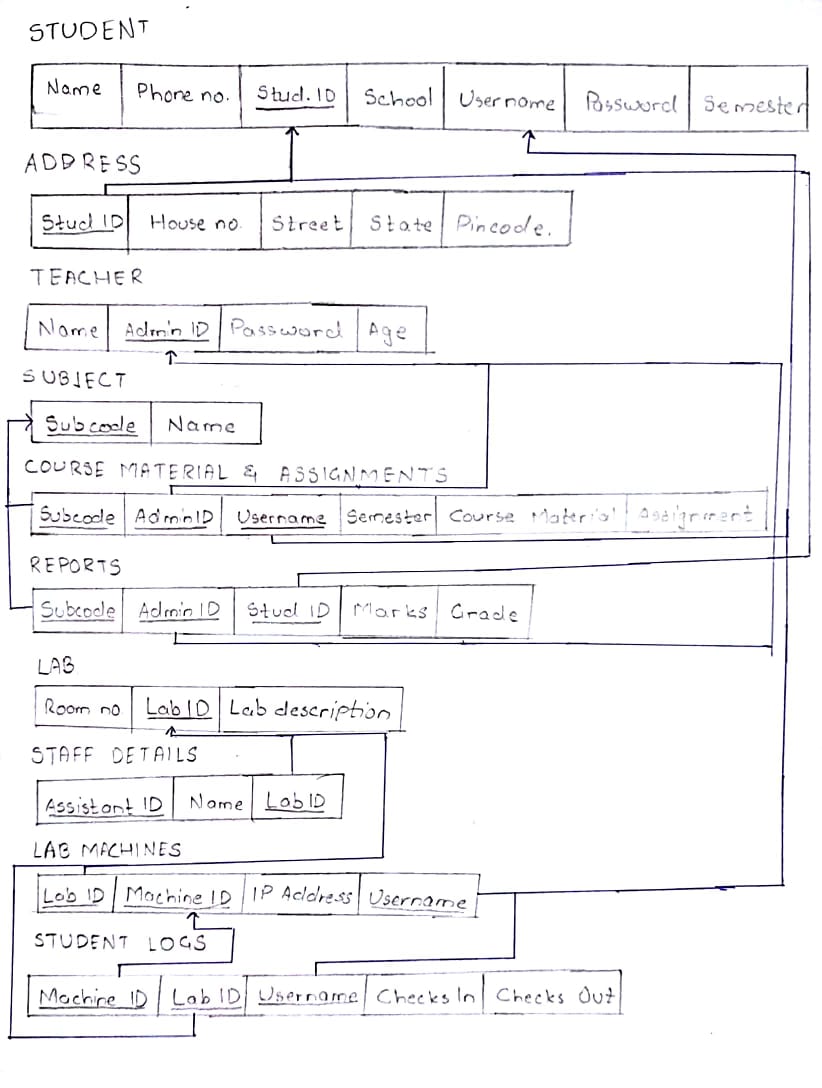 STUDENT
Name Phone no. Stud. ID School Username Password Semester
ADDRESS
Stud ID House no. Street State Pincode.
TEACHER
Name Admin ID Password Age
SUBJECT
Subcode Name
COURSE MATERIAL & ASSIGNMENTS
Subcode Admin ID Username Semester Course Material Assignment
REPORTS
Subcode Admin ID Stud ID Marks Grade
LAB
Room no Lab ID Lab description
STAFF DETAILS
Assistant ID Name Lab ID
LAB MACHINES
Lab ID Machine ID IP Address Username
STUDENT LOGS
Machine ID Lab ID Username Checks In Checks Out